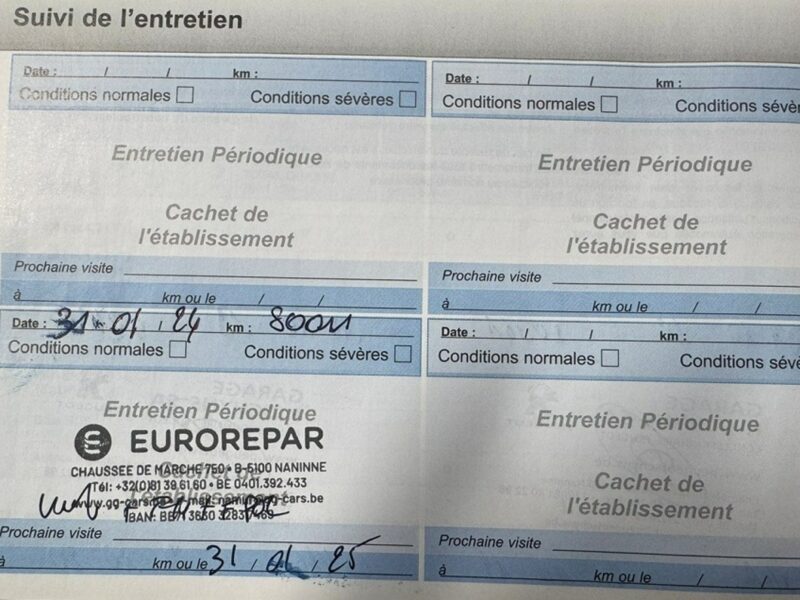 Suivi de l'entretien
Date : / / km :
Conditions normales Conditions sévères
Entretien Périodique
Cachet de
l'établissement
Prochaine visite
à km ou le / /
Date : / / km :
Conditions normales Conditions sévè
Entretien Périodique
Cachet de
l'établissement
Prochaine visite
à km ou le / /
Date : 31 . 01 , 24 km :
Conditions normales Conditions sévères
Entretien Périodique
EUROREPAR
CHAUSSEE DE MARCHE 750 • B-5100 NANINNE
Tél: +32(0)81 39.61.60 • BE 0401.392.433
www.gg-cars.be
Prochaine visite
à km ou le 31 / 01 / 25
Date : / / km :
Conditions normales Conditions sévè
Entretien Périodique
Cachet de
l'établissement
Prochaine visite
à km ou le / /